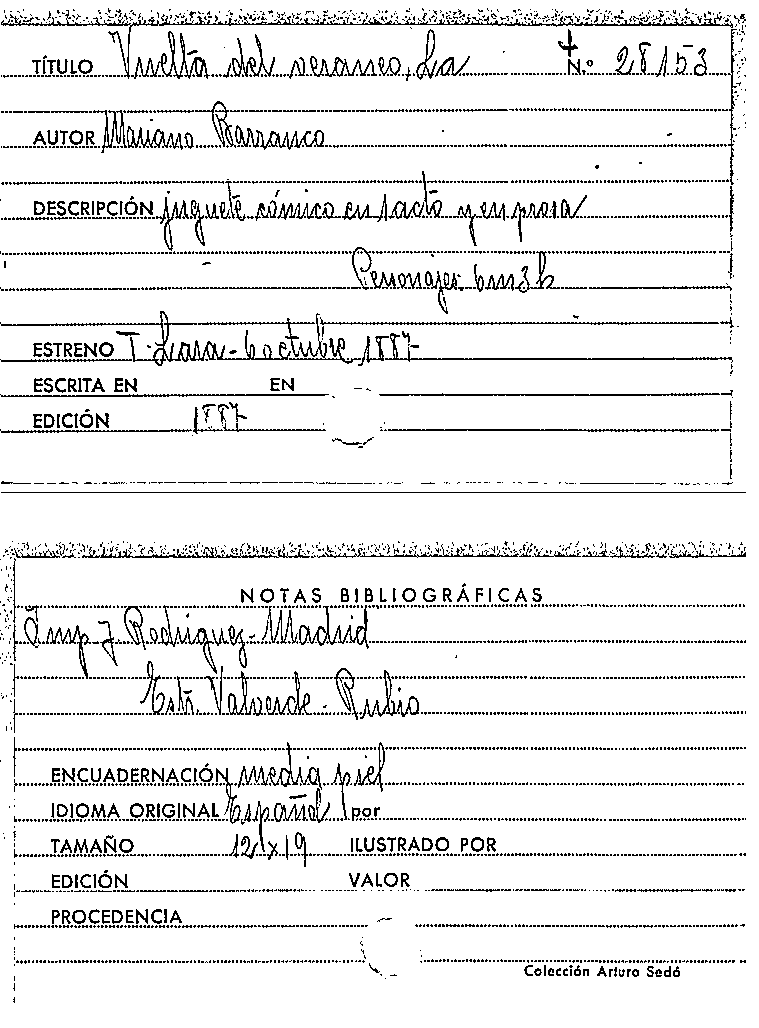 TÍTULO Vuelta del veraneo, La N.º 28153
AUTOR Mariano Barranco
DESCRIPCIÓN juguete cómico en 1 acto y en prosa
Personajes. 6m 3h
ESTRENO T. Lara - 6 octubre 1887
ESCRITA EN EN
EDICIÓN 1887
NOTAS BIBLIOGRÁFICAS
Imp J. Rodriguez - Madrid
Estr. Valverde - Rubio
ENCUADERNACIÓN media piel
IDIOMA ORIGINAL Español por
TAMAÑO 12 x 19 ILUSTRADO POR
EDICIÓN VALOR
PROCEDENCIA
Colección Arturo Sedó